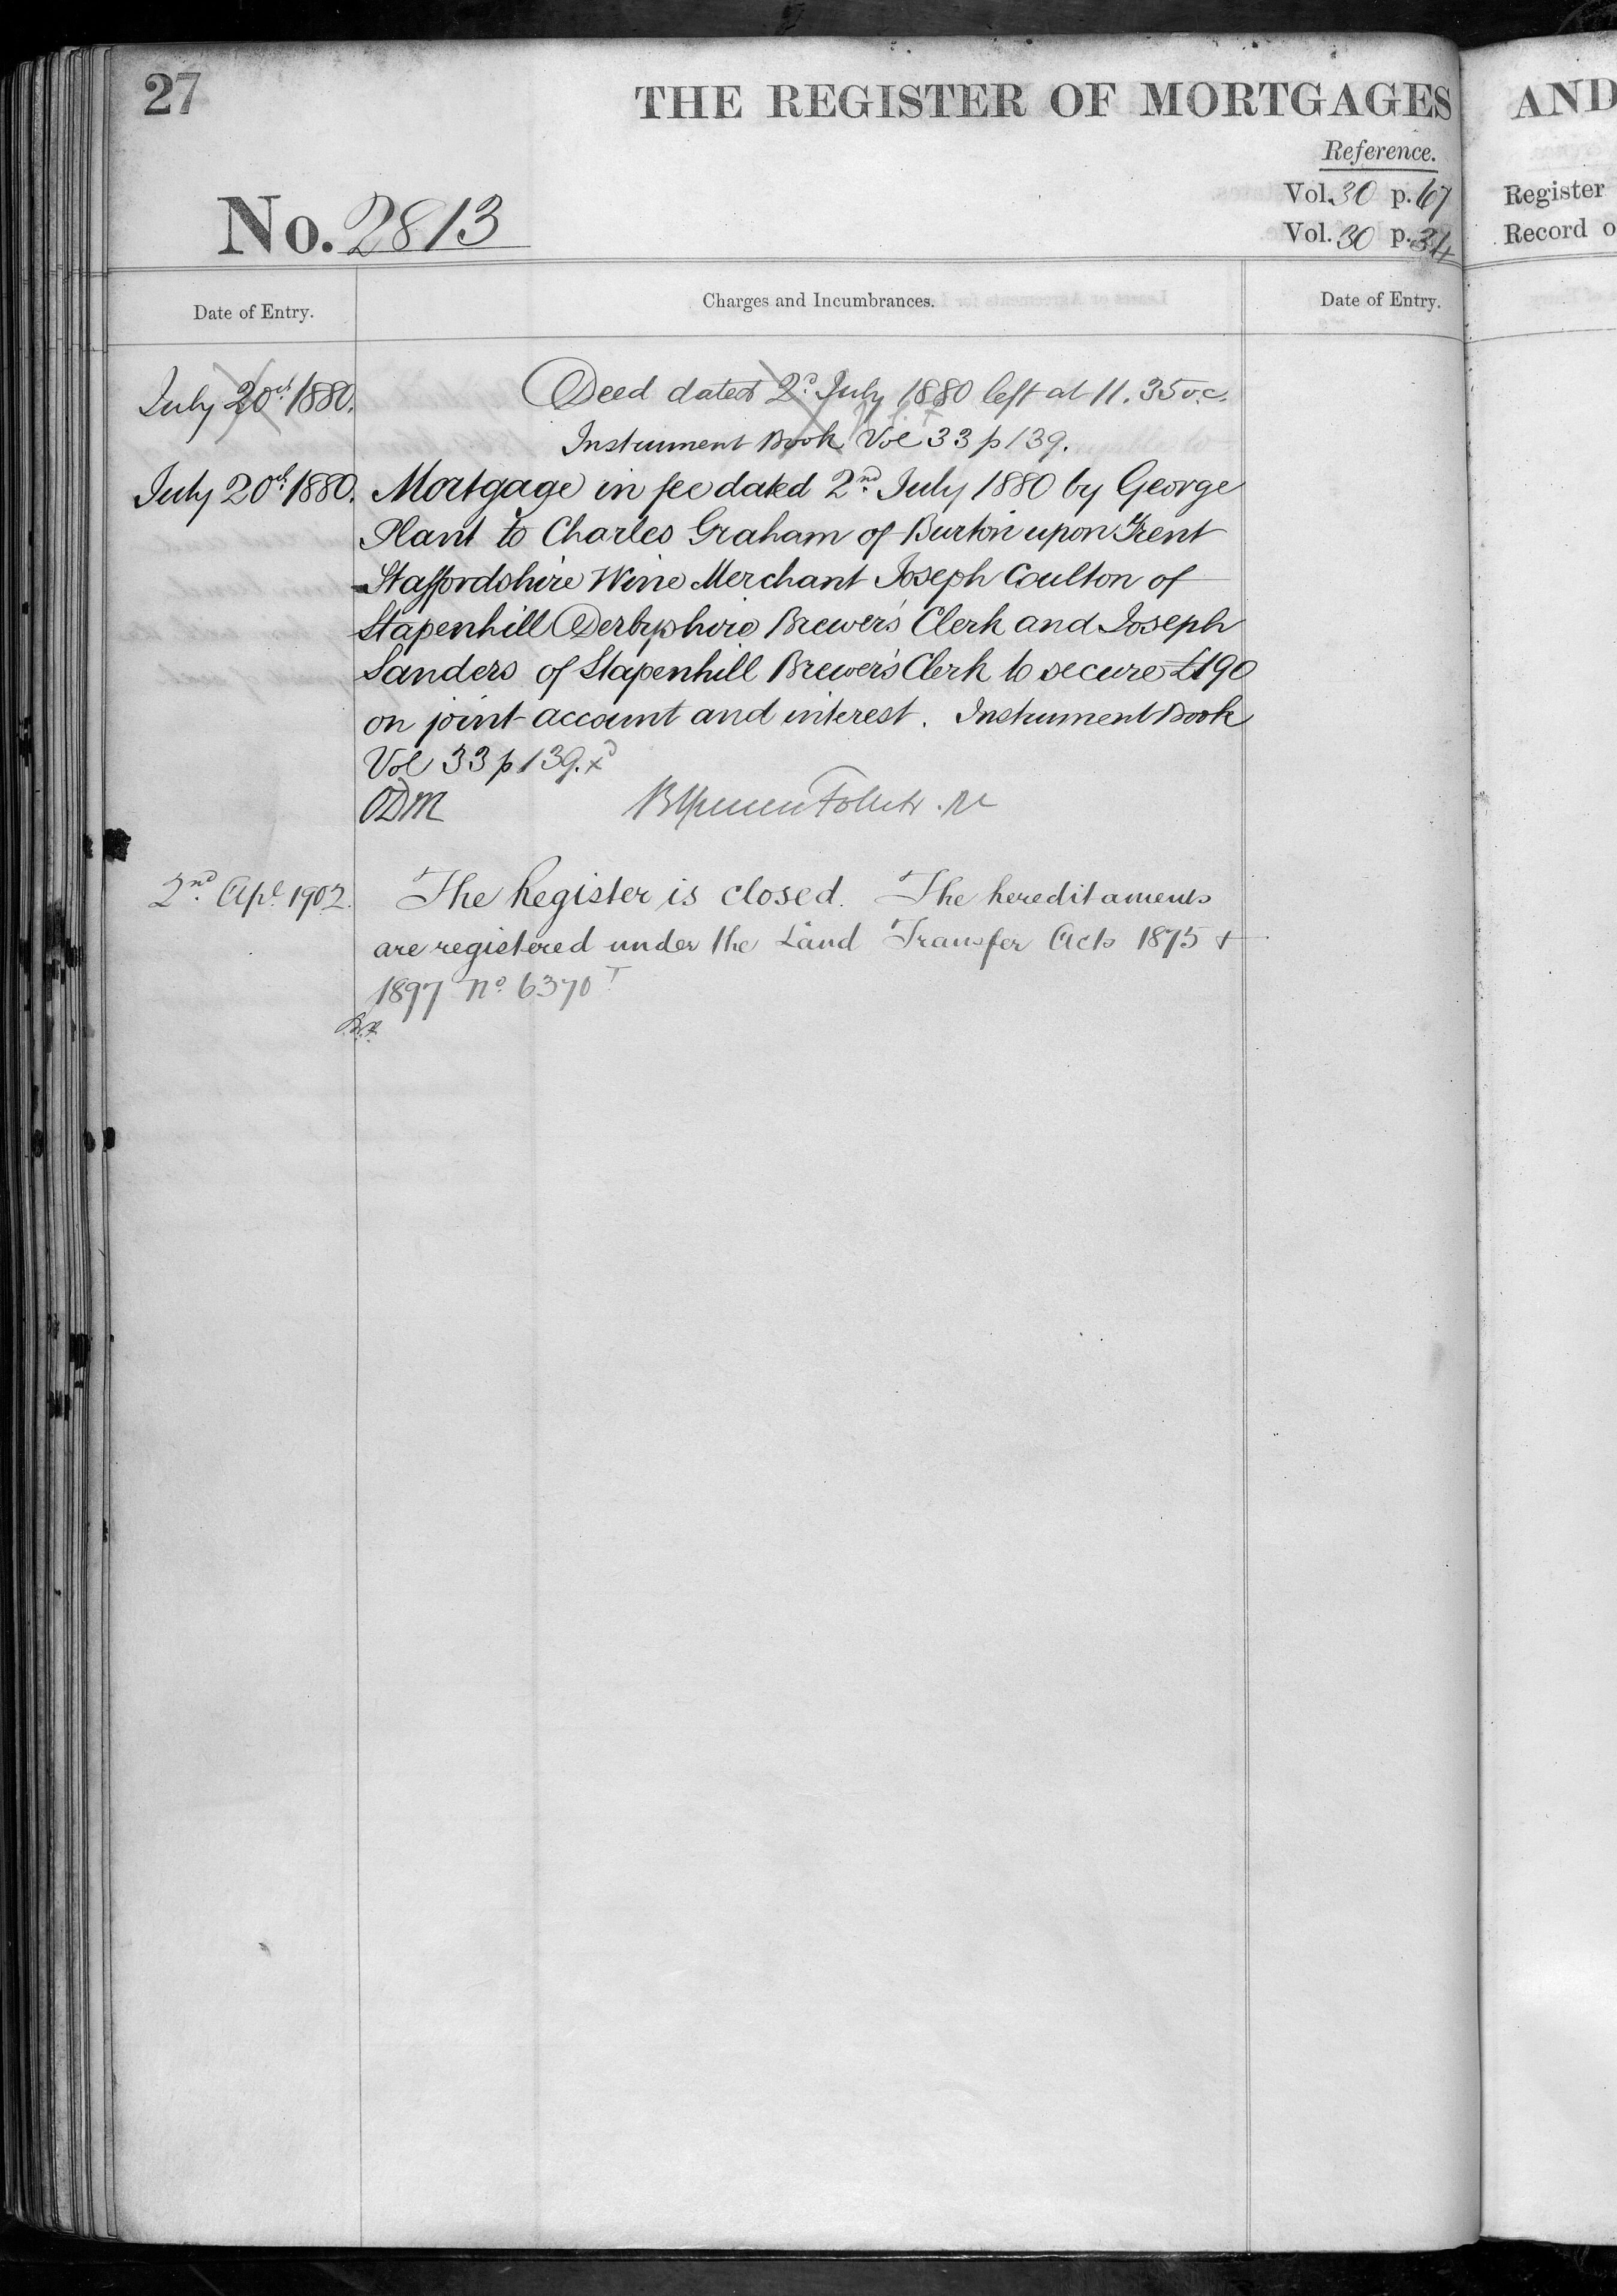 27
THE REGISTER OF MORTGAGES
AND
Reference.
No. 2813
Vol. 30 p. 67
Register
Vol. 30 p. 34
Record o
Date of Entry.
Charges and Incumbrances.
Date of Entry.
July 20th 1880.
Deed dated 2d July 1880 left at 11.35 o.c.
Instrument Book Vol 33 p 139.
July 20th 1880. Mortgage in fee dated 2nd July 1880 by George
Plant to Charles Graham of Burton upon Trent
Staffordshire Wine Merchant Joseph Coulton of
Stapenhill Derbyshire Brewer's Clerk and Joseph
Sanders of Stapenhill Brewer's Clerk to secure £190
on joint account and interest. Instrument Book
Vol 33 p 139. xd
ODM
2nd Apl 1902. The Register is closed. The hereditaments
are registered under the Land Transfer Acts 1875 +
1897 No 6370